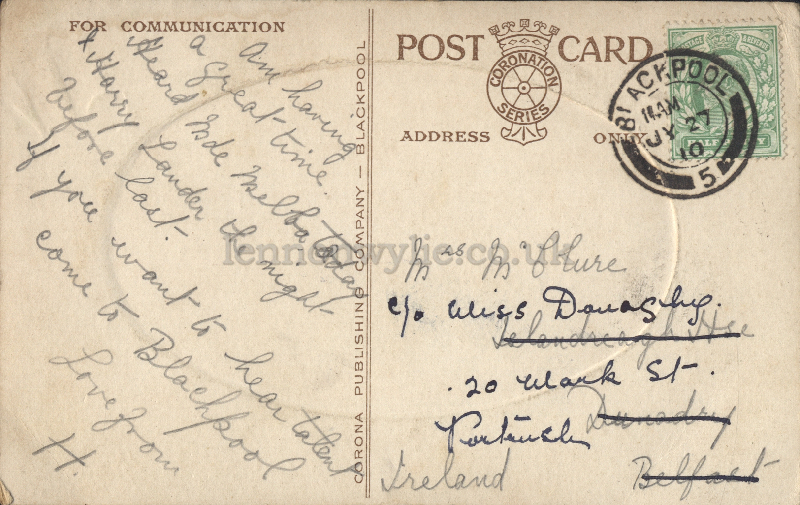 FOR COMMUNICATION
Am having
a great time.
Heard Mde Melba today
& Harry Lauder the night
before last.
If you want to hear talent
come to Blackpool
Love from
H.
CORONA PUBLISHING COMPANY — BLACKPOOL
POST CARD
CORONATION
SERIES
ADDRESS ONLY
BLACKPOOL
11. AM
JY 27
10
5
Mrs McClure
c/o Miss Donaghy.
Islandreagh Hse
20 Mark St.
Dunadry
Portrush
Ireland
Belfast
lennonwylie.co.uk